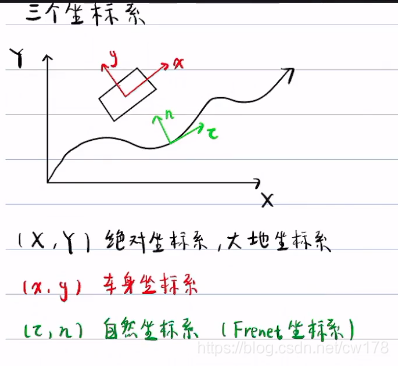 三个坐标系
Y
y
x
n
τ
X
(X,Y) 绝对坐标系,大地坐标系
(x,y) 车身坐标系
(τ,n) 自然坐标系 (Frenet坐标系)
https://blog.csdn.net/cw178